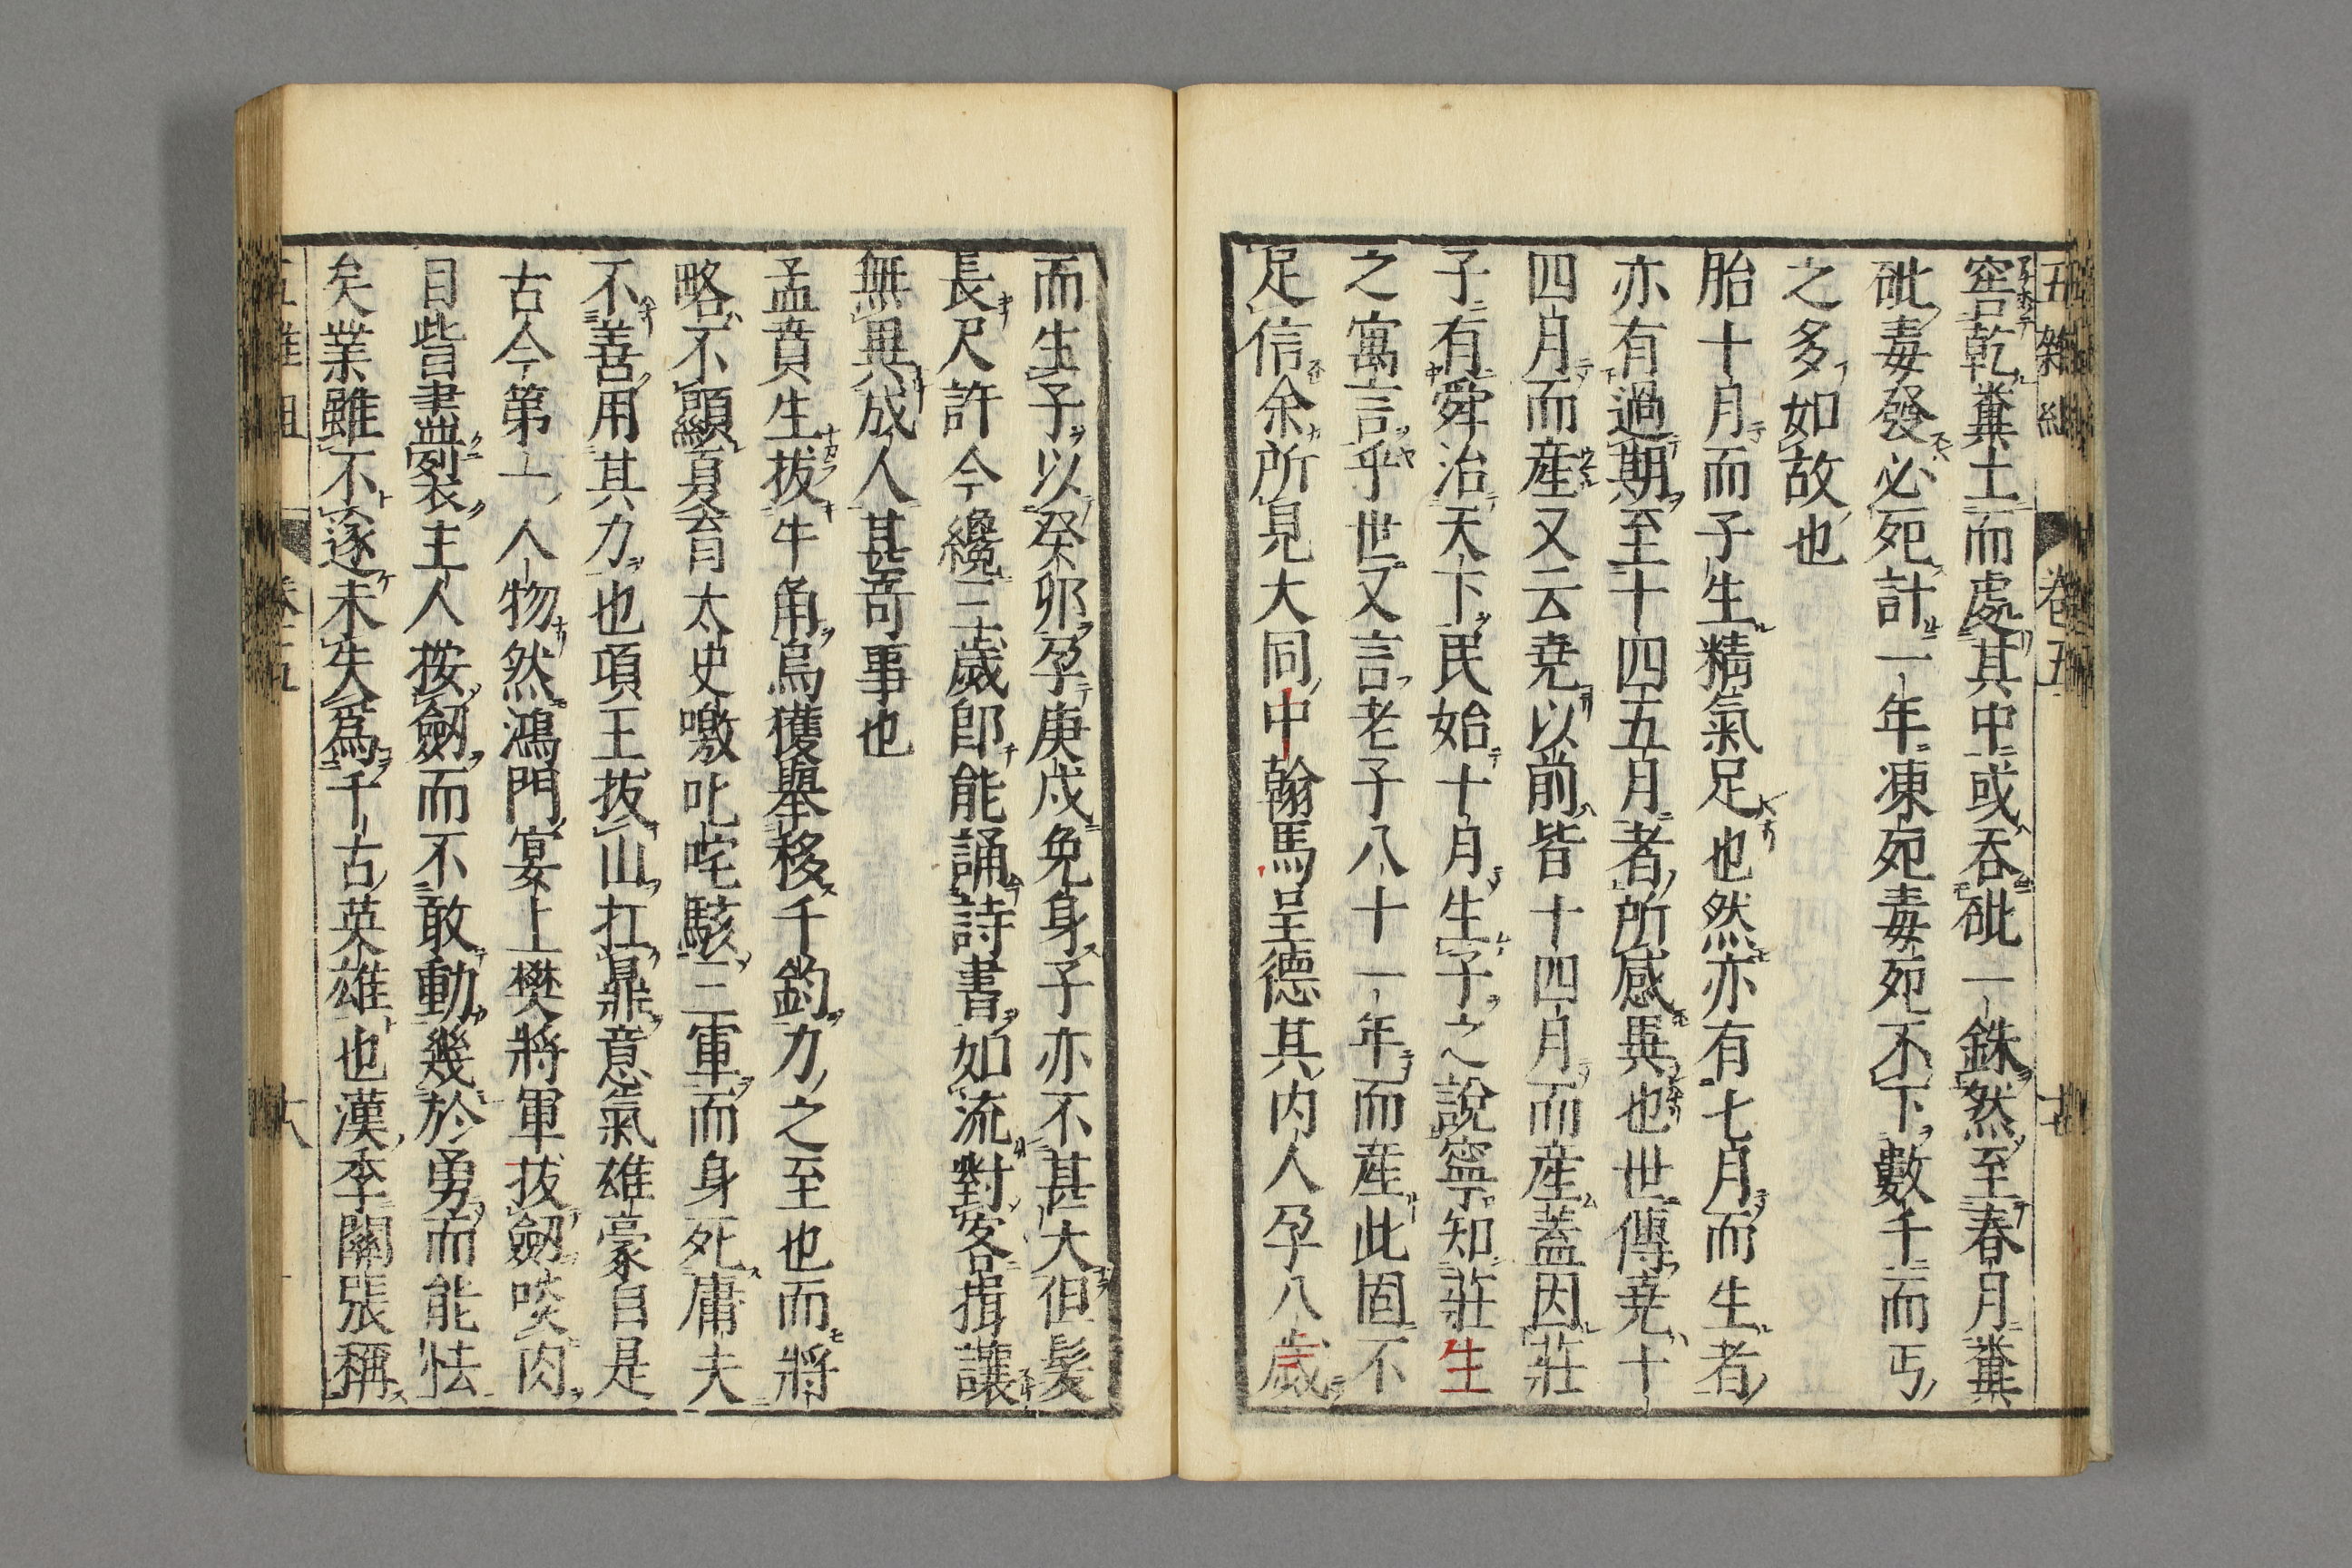 五雜組 卷五
窖乾糞土而處其中或吞砒一銖然至春月糞
砒毒發必死計一年凍死毒死不下數千而丐
之多如故也
胎十月而子生精氣足也然亦有七月而生者
亦有過期至十四五月者所感異也世傳堯十
四月而產又云堯以前皆十四月而產蓋因莊
子有舜治天下民始十月生子之說寧知莊生
之寓言乎世又言老子八十一年而產此固不
足信余所見大同中翰馬呈德其內人孕八歲
而生子以癸卯孕庚戌免身子亦不甚大但髮
長尺許今纔三歲卽能誦詩書如流對客揖讓
無異成人甚奇事也
孟賁生拔牛角烏獲舉移千鈞力之至也而將
略不顯夏育太史噭叱咤駭三軍而身死庸夫
不善用其力也項王拔山扛鼎意氣雄豪自是
古今第一人物然鴻門宴上樊將軍拔劒啖肉
目眥盡裂主人按劒而不敢動幾於勇而能怯
矣業雖不遂未失爲千古英雄也漢季關張稱